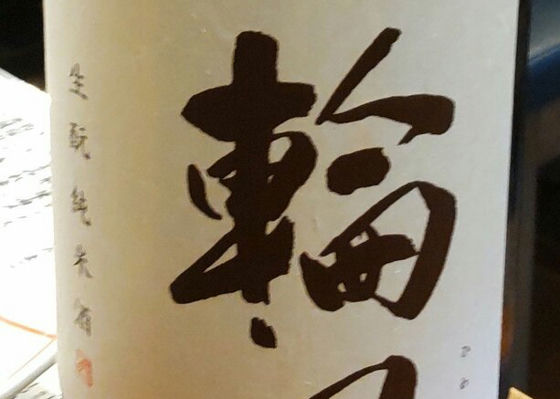 輪
生酛純米酒